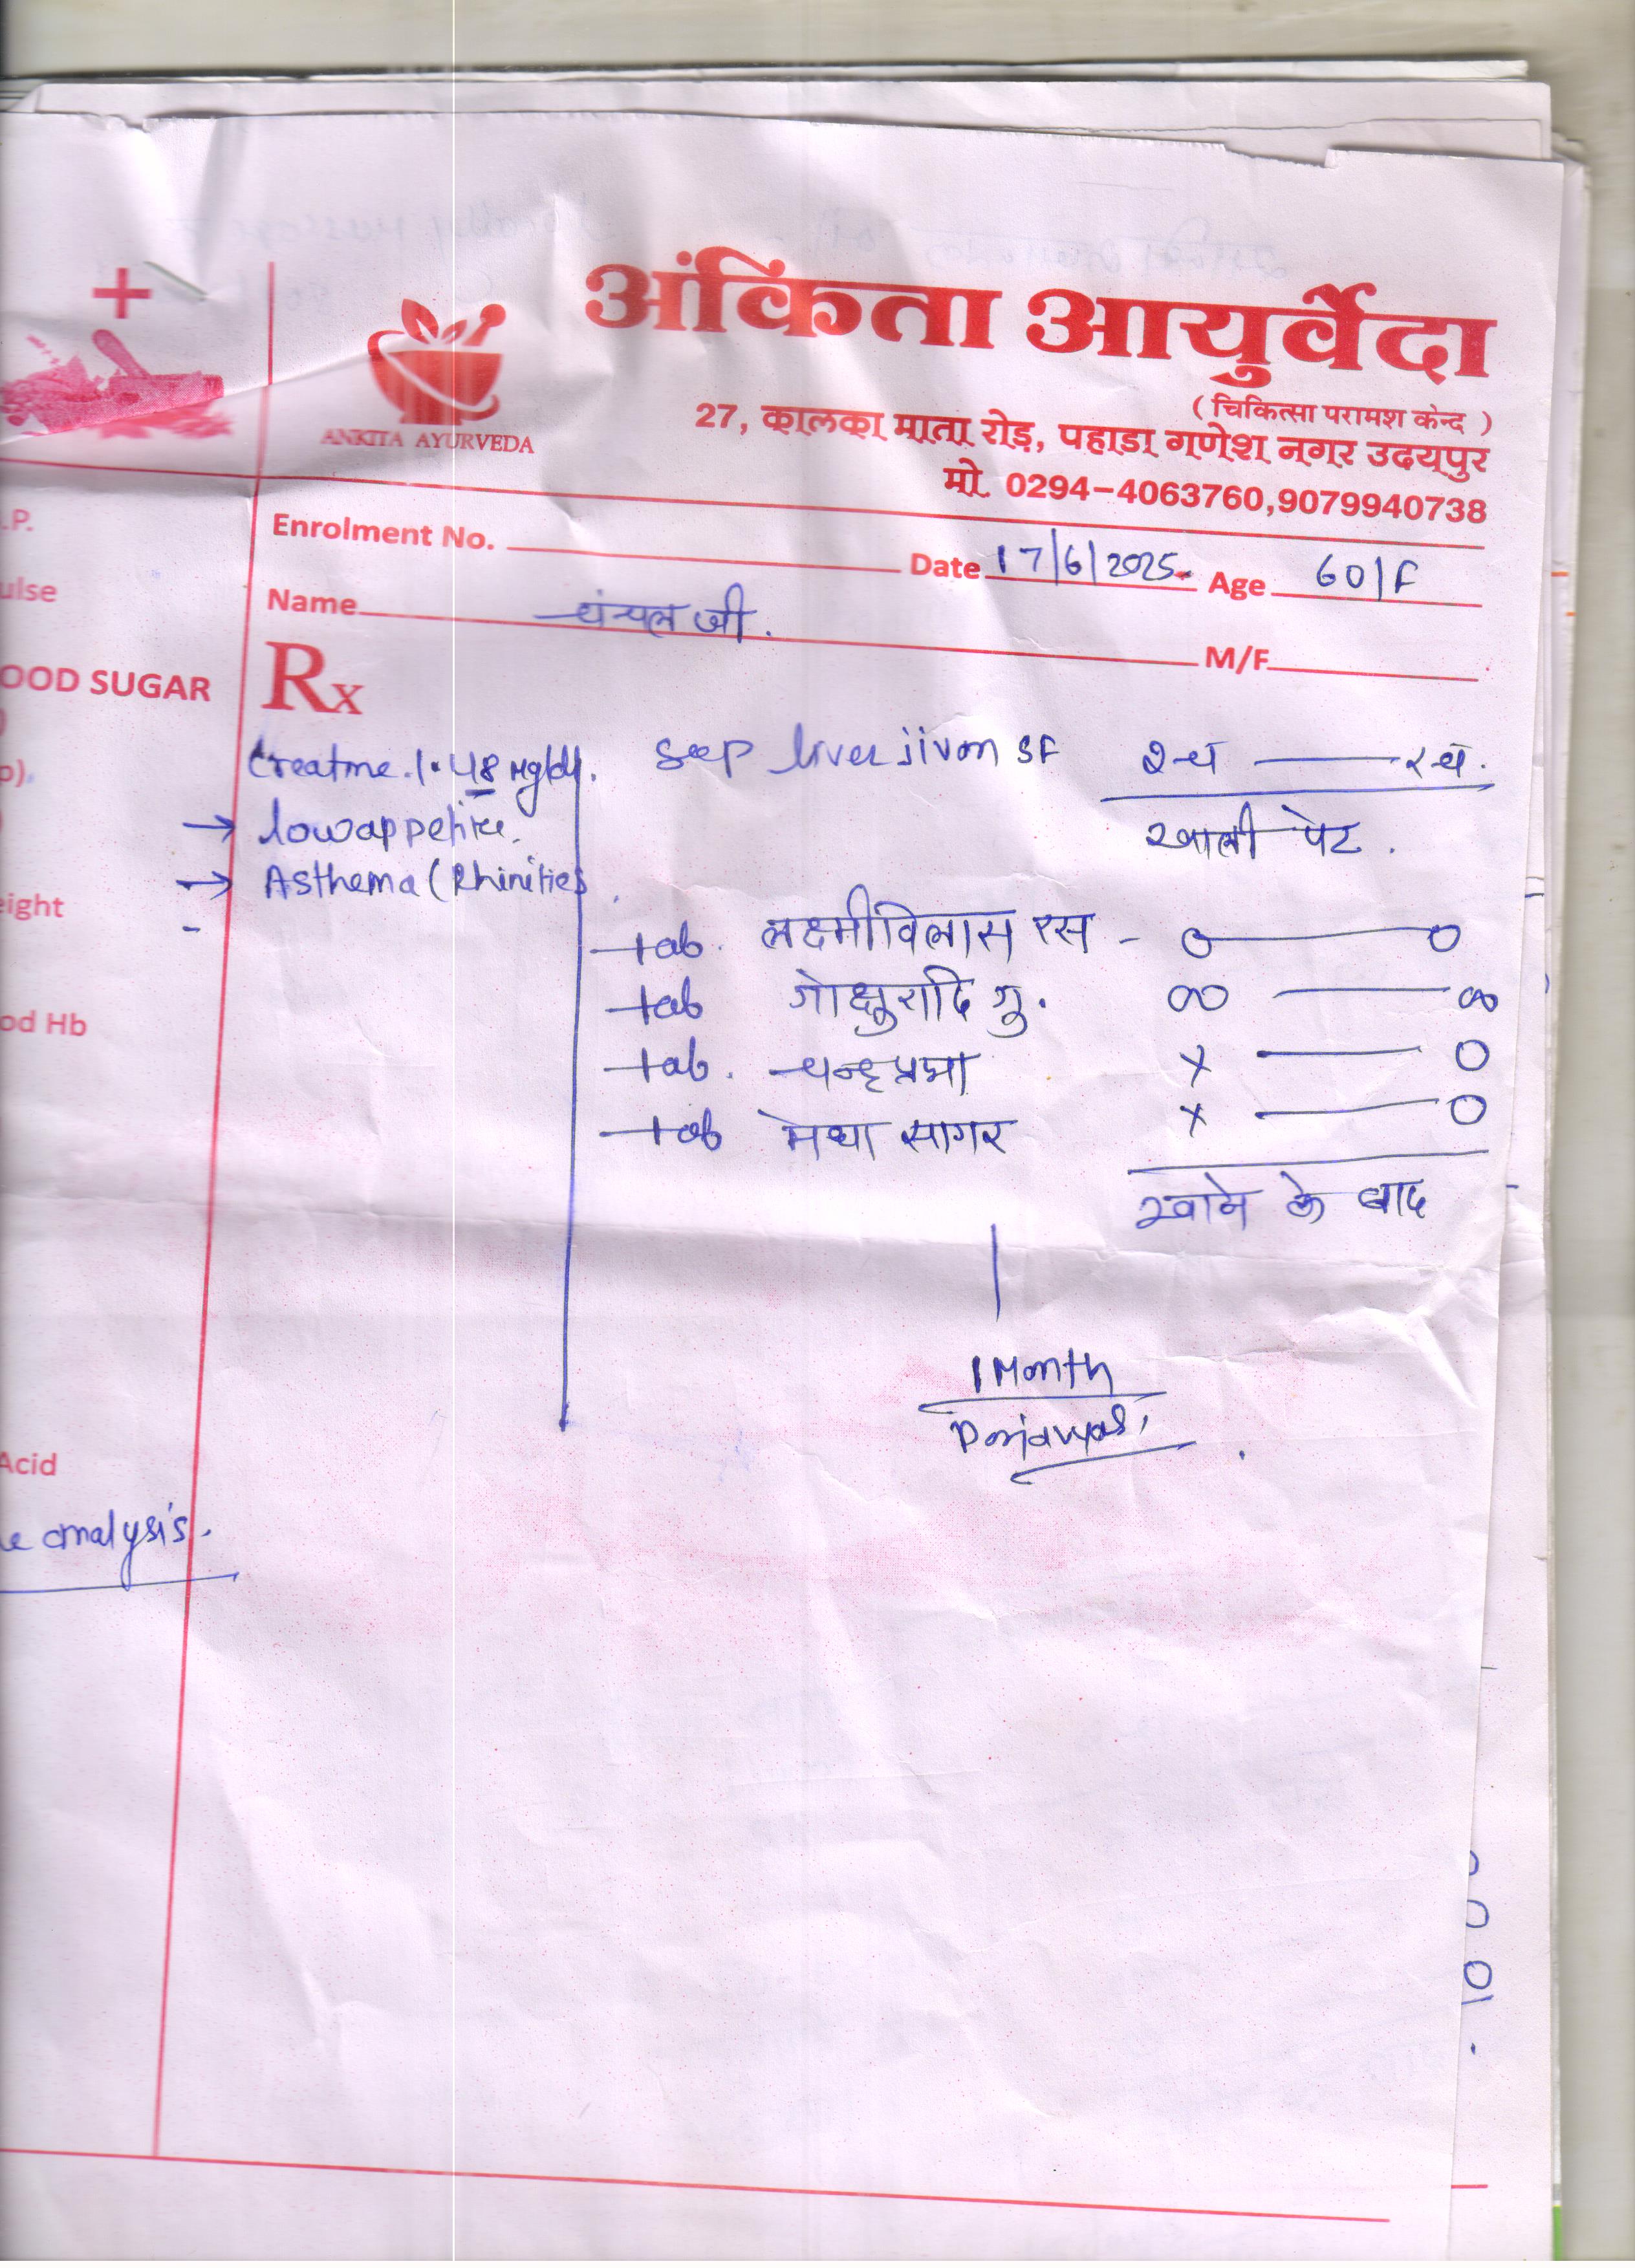 अंकिता आयुर्वेदा
( चिकित्सा परामश केन्द )
ANKITA AYURVEDA
27, कालका माता रोड़, पहाडा गणेश नगर उदयपुर
मो. 0294-4063760,9079940738
Enrolment No. Date 17/6/2025. Age 60/F
Name चंचल जी.
M/F
.P.
ulse
OOD SUGAR
p).
eight
od Hb
Acid
e analysis.
Rx
Creatine.1.48 mg/dl.
→ low appetite.
→ Asthema (Rhinities)
liver jivan SF 2 च — 2 च.
खाली पेट.
tab. लक्ष्मीविलास रस - O — O
tab गोक्षुरादि गु. OO — OO
tab. चन्द्रप्रभा x — O
tab मेधा सागर x — O
खाने के बाद
1 Month